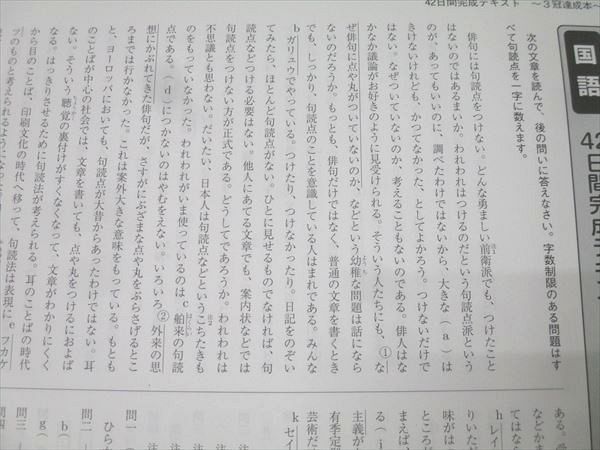 42日間完成テキスト 〜3冠達成本〜
国語
42日間完成テキス
次の文章を読んで、後の問いに答えなさい。字数制限のある問題はす
べて句読点を一字に数えます。
俳句には句読点をつけない。どんな勇ましい前衛派でも、つけたこと
はないのではあるまいか。われわれはつけるのだという句読点派という
のが、あってもいいのに、調べたわけではないから、大きな（ａ）は
きけないけれども、かつてなかった、としてよかろう。つけないだけで
はない。なぜついていないのか、考えることもないのである。俳人はな
かなか議論がお好きのように見受けられる。そういう人たちにも、①な
ぜ俳句に点や丸がついていないのか、などという幼稚な問題は話になら
ないのだろうか。もっとも、俳句だけではなく、普通の文章を書くとき
でも、しっかり、句読点のことを意識している人はまれである。みんな
ｂガリュウでやっている。つけたり、つけなかったり。日記をのぞい
てみたら、ほとんど句読点がない。ひとに見せるものでなければ、句
読点などつける必要はない。他人にあてる文章でも、案内状などでは
句読点をつけない方が正式である。どうしてであろうか。われわれは
不思議とも思わない。だいたい、日本人は句読点などというこちたきも
のをもっていなかった。われわれがいま使っているのはｃ舶来の句読
点である。（ｄ）につかないのはやむをえない。いろいろ②外来の思
想にかぶれてきた俳句だが、さすがにぶざまな点や丸をぶらさげるとこ
ろまでは行かなかった。これは案外大きな意味をもっている。もとも
と、ヨーロッパにおいても、句読点が大昔からあったわけではない。耳
のことばが中心の社会では、文章を書いても、点や丸をつけるにおよば
ない。そういう聴覚の裏付けがすくなくなって、文章がわかりにくく
なる。はっきりさせるために句読法が考えられる。耳のことばの時代
から目のことば、印刷文化の時代へ移って、句読法は表現にｅフカケ
ツのものと考えられるように
ある。
などか
てはなら
ｈレイ
りいた
味がは
ところ
まえば、
る（ｉ
主義が
有季定
芸術だ
ｋセイ
注
問一
ひらか
問二
ｂ（
ｇ（
問三
問四